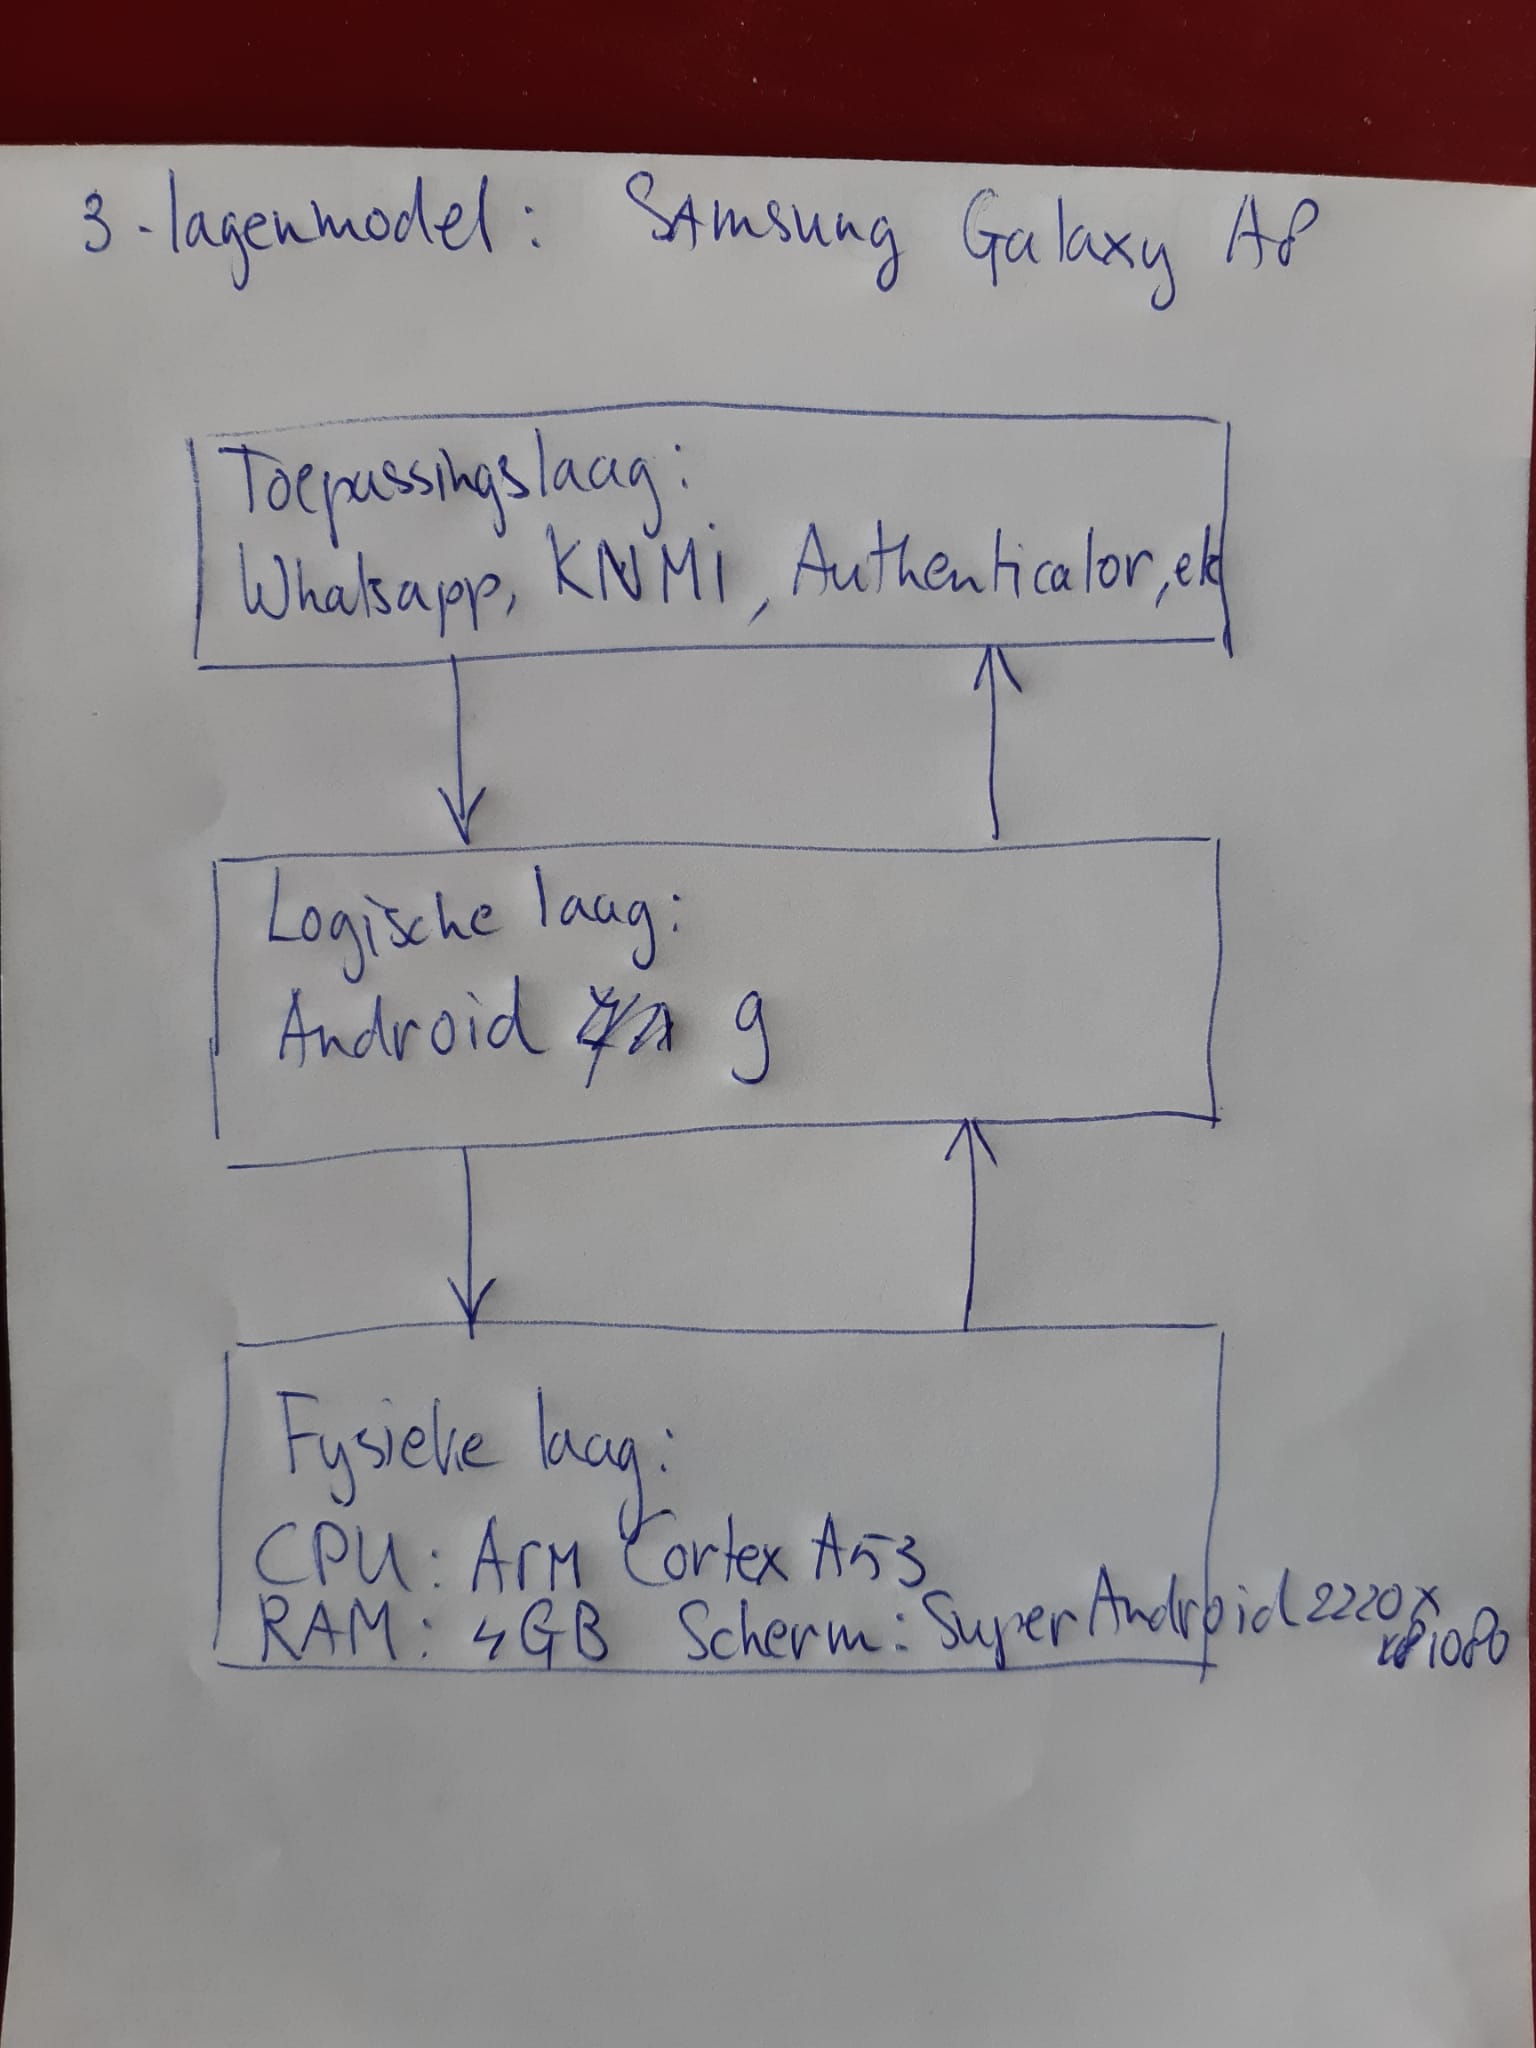 3-lagenmodel: Samsung Galaxy A8
Toepassingslaag:
Whatsapp, KNMi, Authenticator, etc
Logische laag:
Android 9
Fysieke laag:
CPU: Arm Cortex A53
RAM: 4GB Scherm: Super Android 2220x
1080